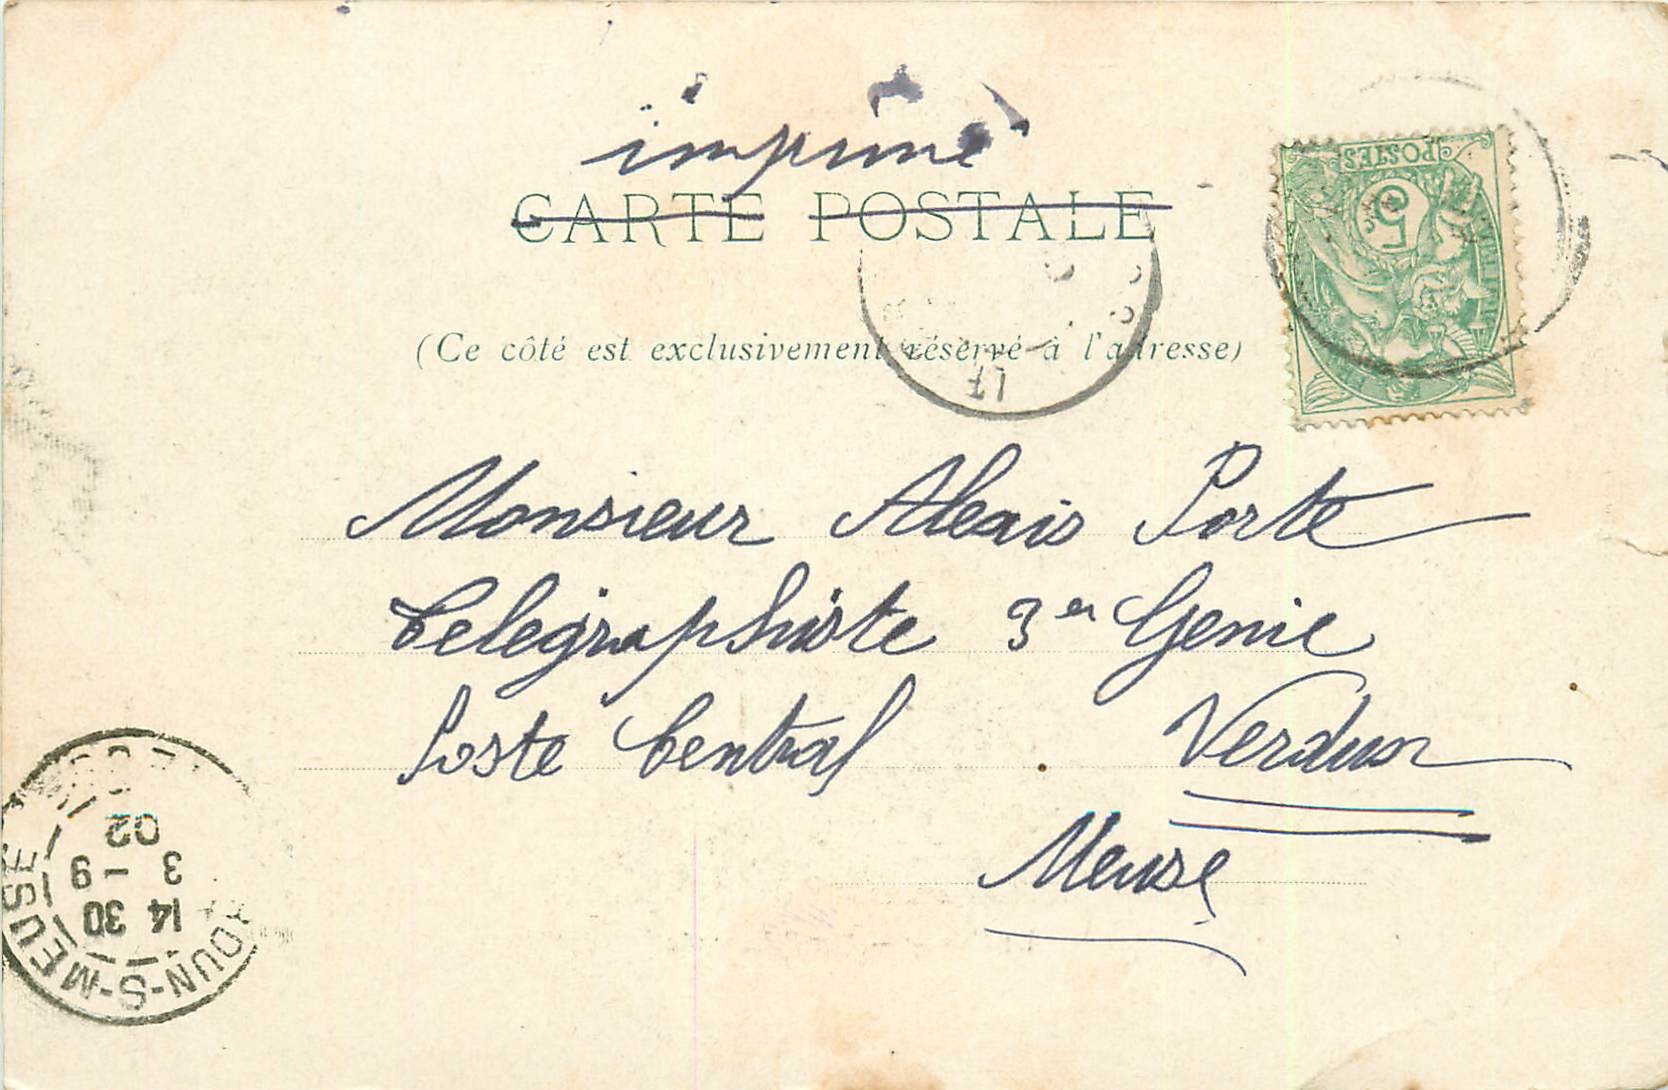 imprimé
CARTE POSTALE
POSTES
5
(Ce côté est exclusivement réservé à l'adresse)
17
Monsieur Alexis Porte
Telegraphiste 3er Genie
Poste Central Verdun
Meuse
14 30
3 - 9
02
DUN-S-MEUSE